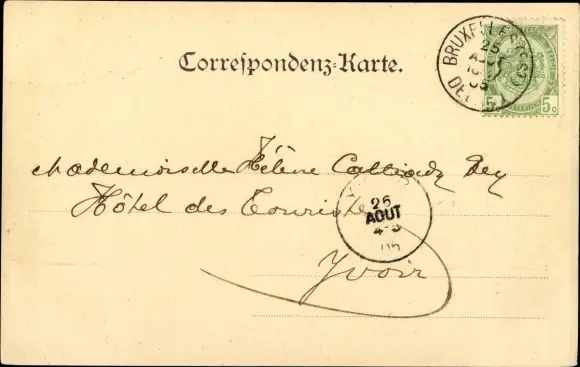 Correspondenz-Karte.
BRUXELLES
25
AOUT
DEPART
5 5c
Mademoiselle Hélène
Hôtel des Touristes
26
AOUT
4-5
05
Yvoir